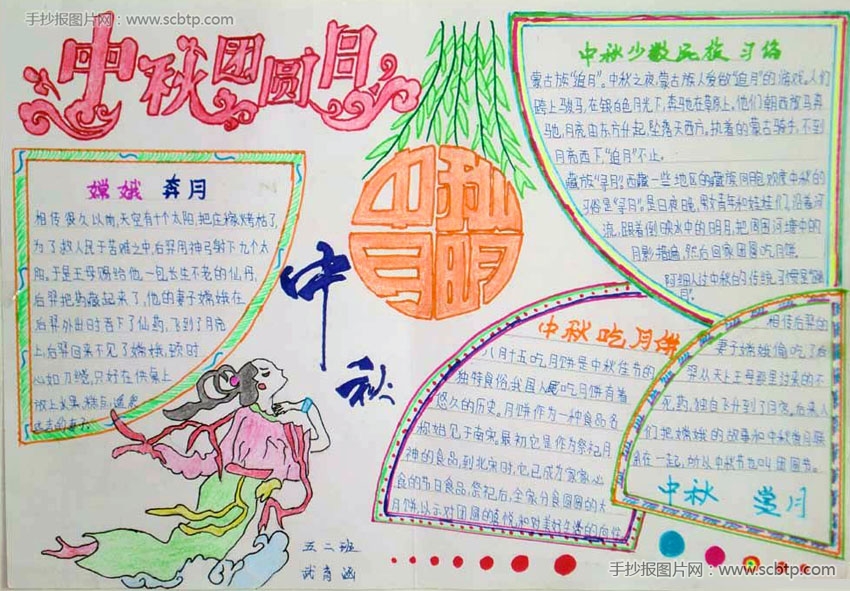 手抄报图片网：www.scbtp.com
中秋团圆日
嫦娥 奔月
相传很久以前,天空有十个太阳,把庄稼烤枯了,
为了救人民于苦难之中,后羿用神弓射下九个太
阳。于是王母赐给他一包长生不老的仙丹,
后羿把药藏起来了,他的妻子嫦娥在
后羿外出时吞下了仙药,飞到了月宫
上,后羿回来不见了嫦娥,顿时
心如刀绕,只好在供桌上
放上水果、糕点,遥
远去的妻子
中秋月明
中秋
中秋少数民族习俗
蒙古族“追月”。中秋之夜,蒙古族人爱做“追月”的游戏。人们
跨上骏马,在银白色月光下,奔驰在草原上。他们朝西放马奔
驰,月亮由东方升起,坠落天西方。执着的蒙古骑手,不到
月亮西下“追月”不止。
藏族“寻月”西藏一些地区的藏族同胞欢度中秋的
习俗是“寻月”。是日夜晚,男女青年和娃娃们,沿着河
流,跟着倒映水中的明月,把周围河塘中的
月影 遍,然后回家团圆吃月饼。
阿细人过中秋的传统习惯是“跳
月”。
中秋吃月饼
八月十五吃月饼是中秋佳节的
独特食俗,我国人民吃月饼有着
悠久的历史。月饼作为一种食品名
始见于南宋,最初它是作为祭祀月
神的食品,到北宋时,它已成为家家必
食的节日食品,祭祀后,全家分食圆圆的大
月饼,以示对团圆的喜悦,和对美好生活的向往
相传后羿的
妻子嫦娥偷吃了后
羿从天上王母那里过来的不
死药,独自飞升到了月宫。后来人
们把嫦娥的故事和中秋赏月联
系在一起,所以中秋节也叫团圆节。
中秋 赏月
五二班
武
手抄报图片网：www.scbtp.com